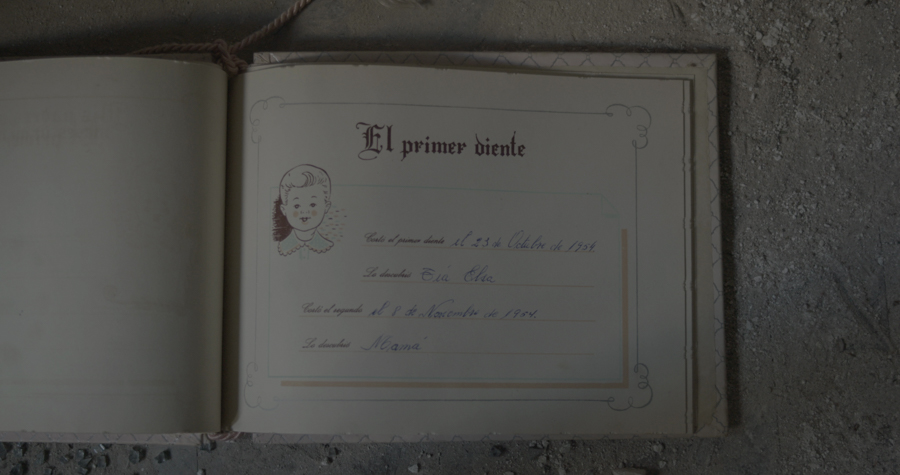 El primer diente
Cortó el primer diente el 23 de Octubre de 1954.
Lo descubrió Tía Elsa
Cortó el segundo el 8 de Noviembre de 1954.
Lo descubrió Mamá